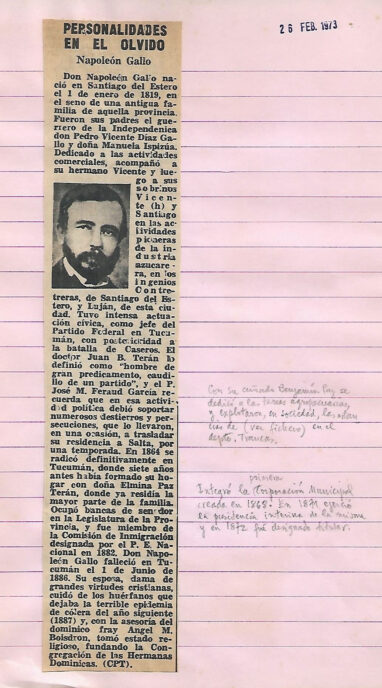 26 FEB. 1973
PERSONALIDADES
EN EL OLVIDO
Napoleón Gallo
Don Napoleón Gallo na-
ció en Santiago del Estero
el 1 de enero de 1819, en
el seno de una antigua fa-
milia de aquella provincia.
Fueron sus padres el gue-
rrero de la Independenica
don Pedro Vicente Díaz Ga-
llo y doña Manuela Ispizúa.
Dedicado a las actividades
comerciales, acompañó a
su hermano Vicente y lue-
go a sus
sobrinos
Vicen-
te (h) y
Santiago
en las ac-
tividades
pioneras
de la in-
dustria
azucare-
ra, en los
ingenios
Contre-
treras, de Santiago del Es-
tero, y Luján, de esta ciu-
dad. Tuvo intensa actua-
ción cívica, como jefe del
Partido Federal en Tucu-
mán, con posterioridad a
la batalla de Caseros. El
doctor Juan B. Terán lo
definió como "hombre de
gran predicamento, caudi-
llo de un partido", y el P.
José M. Feraud García re-
cuerda que en esa activi-
dad política debió soportar
numerosos destierros y per-
secuciones, que lo llevaron,
en una ocasión, a trasladar
su residencia a Salta, por
una temporada. En 1864 se
radicó definitivamente en
Tucumán, donde siete años
antes había formado su ho-
gar con doña Elmina Paz
Terán, donde ya residía la
mayor parte de la familia.
Ocupó bancas de senador
en la Legislatura de la Pro-
vincia, y fue miembro de
la Comisión de Inmigración
designada por el P. E. Na-
cional en 1882. Don Napo-
león Gallo falleció en Tu-
cumán el 1 de Junio de
1886. Su esposa, dama de
grandes virtudes cristianas,
cuidó de los huérfanos que
dejaba la terrible epidemia
de cólera del año siguiente
(1887) y, con la asesoría del
dominico fray Angel M.
Boisdron, tomó estado re-
ligioso, fundando la Con-
gregación de las Hermanas
Dominicas. (CPT).
Con su cuñado Benjamín Paz se
dedicó a las tareas agropecuarias,
y explotaron, en sociedad, la
de (ver fichero) en el
depto. Trancas.
primera
Integró la Corporación Municipal
creada en 1868. En 1871 ejerció
la presidencia interina de la misma
y en 1872 fué designado titular.